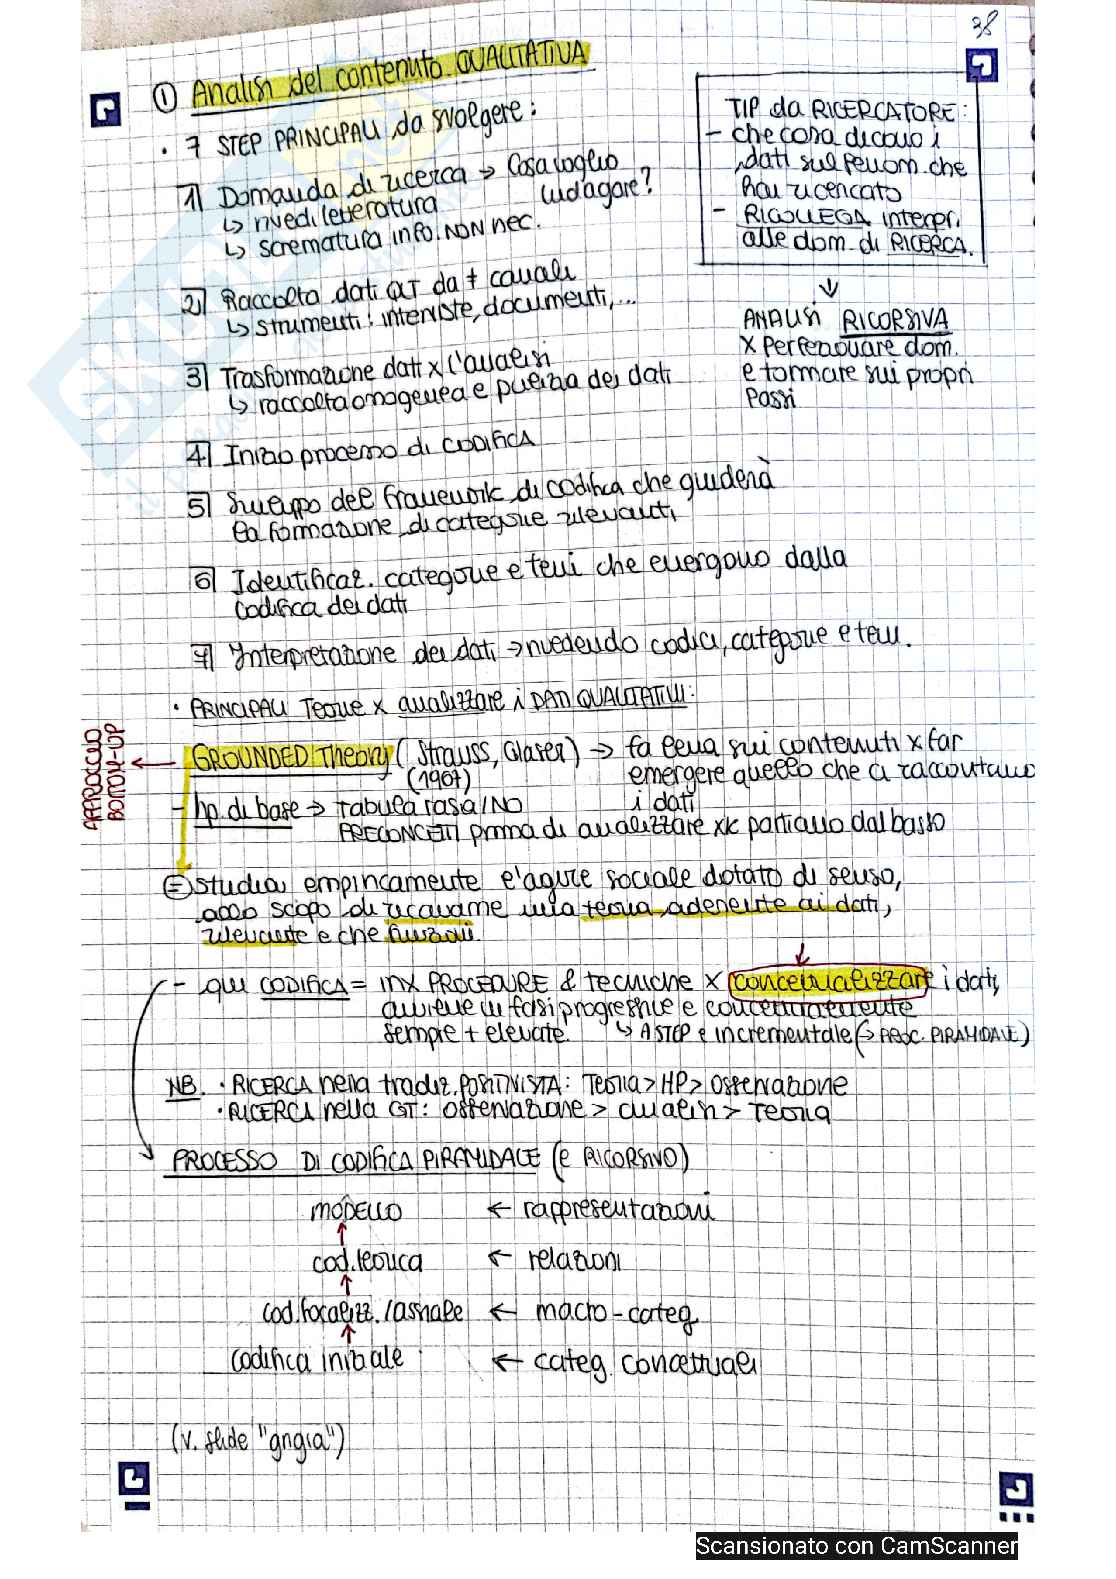 38
① Analisi del contenuto QUALITATIVA
• 7 STEP PRINCIPALI da svolgere:
1) Domanda di ricerca → Cosa voglio
indagare?
↳ rivedi letteratura
↳ scrematura info. NON nec.
2) Raccolta dati QLT da + canali
↳ strumenti: interviste, documenti,...
3) Trasformazione dati x l'analisi
↳ raccolta omogenea e pulizia dei dati
4) Inizio processo di CODIFICA
5) Sviluppo del framework di codifica che guiderà
la formazione di categorie rilevanti
6) Identificaz. categorie e temi che emergono dalla
codifica dei dati
7) Interpretazione dei dati → rivedendo codici, categorie e temi.
TIP da RICERCATORE:
- che cosa dicono i
dati sul fenom. che
hai ricercato
- RICOLLEGA interpr.
alle dom. di RICERCA.
↓
ANALISI RICORSIVA
x perfezionare dom.
e tornare sui propri
passi
• PRINCIPALI Teorie x analizzare i DATI QUALITATIVI:
APPROCCIO
BOTTOM-UP
← GROUNDED Theory (Strauss, Glaser) → fa leva sui contenuti x far
(1967) emergere quello che ci raccontano
i dati
- hp. di base → tabula rasa / NO
PRECONCETTI prima di analizzare xk partiamo dal basso
= studia empiricamente l'agire sociale dotato di senso,
allo scopo di ricavarne una teoria aderente ai dati,
rilevante e che funzioni.
- qui CODIFICA = inx PROCEDURE & tecniche x concettualizzare i dati,
avviene in fasi progressive e concettualmente
sempre + elevate. ↳ A STEP e incrementale (→ PROC. PIRAMIDALE)
NB. • RICERCA nella tradiz. POSITIVISTA: Teoria > HP > Osservazione
• RICERCA nella GT: osservazione > analisi > Teoria
PROCESSO DI CODIFICA PIRAMIDALE (e RICORSIVO)
MODELLO ← rappresentazioni
↑
cod. teorica ← relazioni
↑
cod. focalizz. / assiale ← macro-categ.
↑
codifica iniziale ← categ. concettuali
(v. slide "grigia")
Scansionato con CamScanner